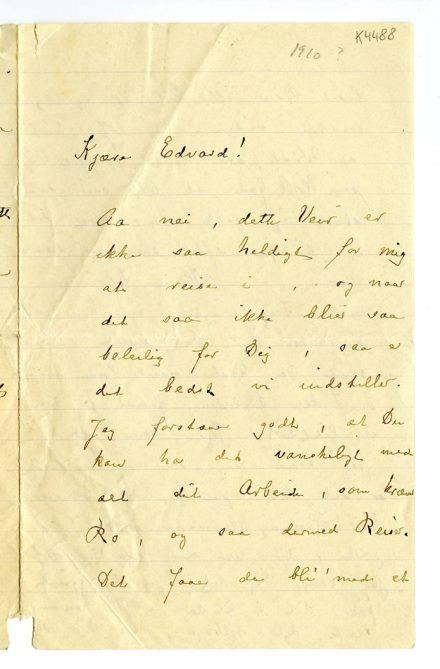 K4488
1910 ?
Kjære Edvard!
Aa nei, dette Veir er
ikke saa heldigt for mig
at reise i, og naar
det saa ikke blir saa
beleilig for Dig, saa e
det bedst vi indstiller.
Jeg forstaar godt, at Du
kan ha det vanskeligt med
alt dit Arbeide, som kræver
Ro, og saa dermed Reiser.
Det faar da bli' med et